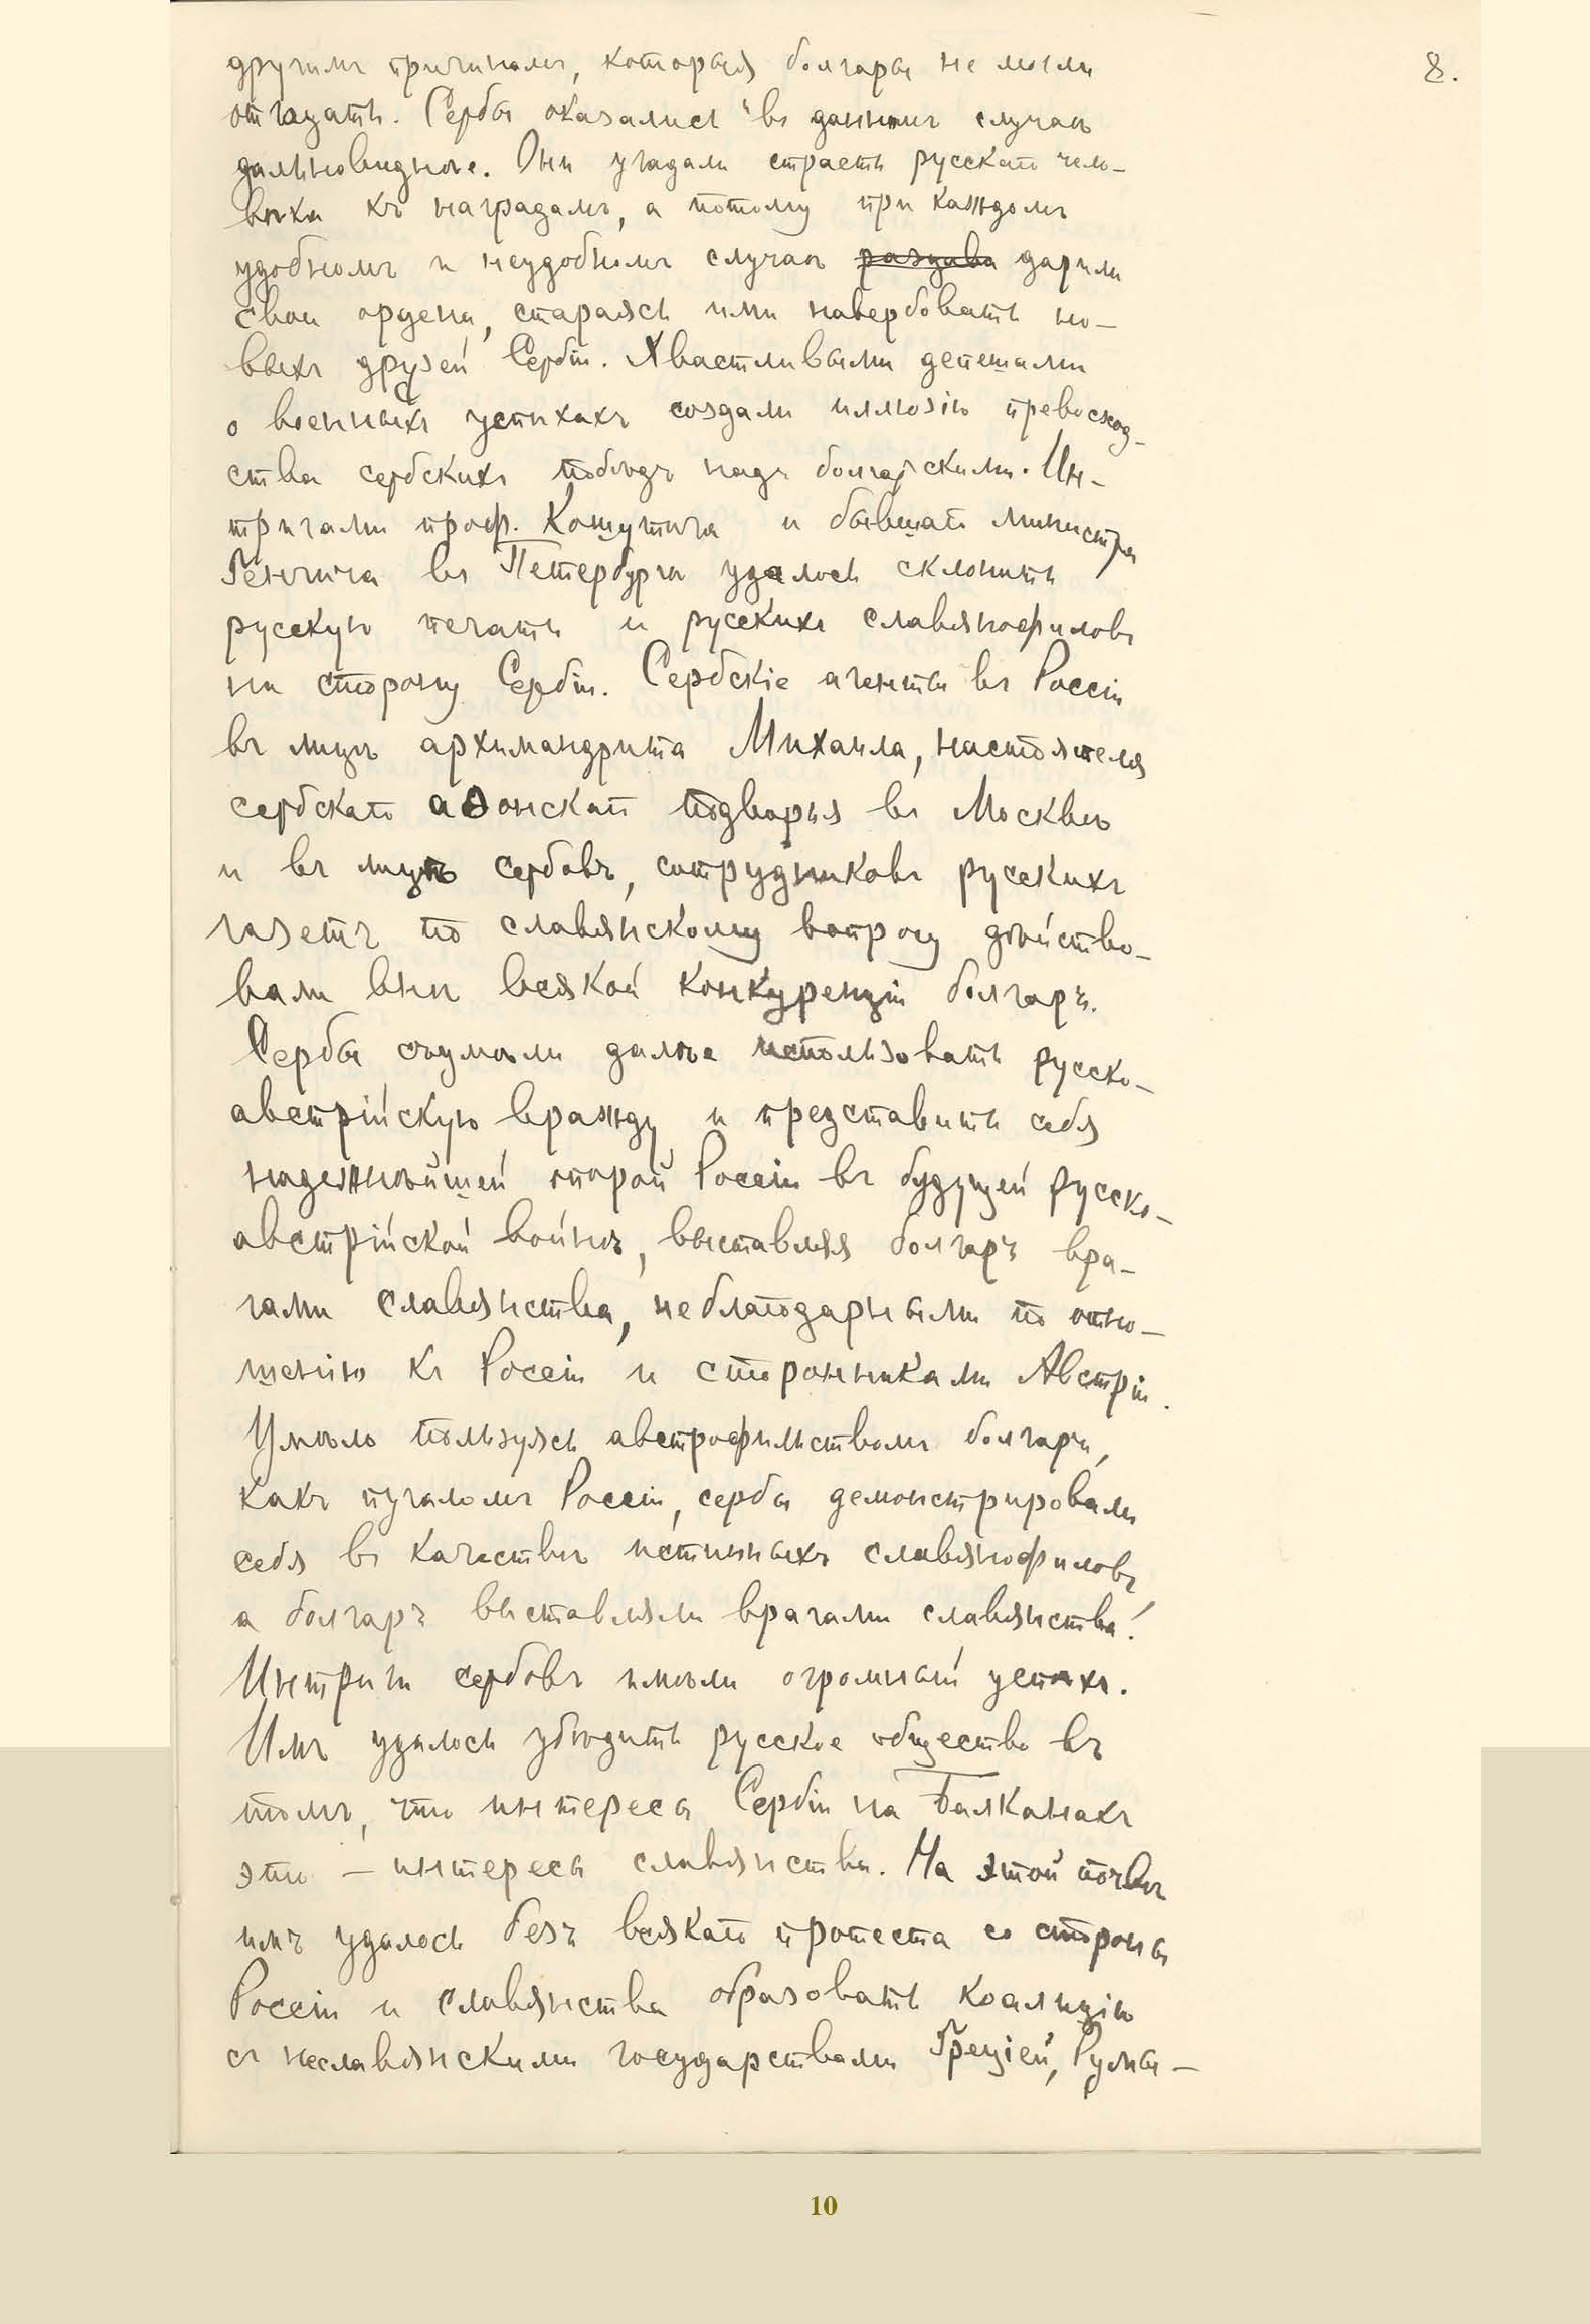 8.
другимъ причинамъ, которыя болгары не могли
отгадать. Сербы оказались въ данномъ случаѣ
дальновиднѣе. Они угадали страсть русскаго чело-
вѣка къ наградамъ, а потому при каждомъ
удобномъ и неудобномъ случаѣ раздава дарили
свои ордена, стараясь ими навербовать но-
выхъ друзей Сербіи. Хвастливыми депешами
о военныхъ успѣхахъ создали иллюзію превосход-
ства сербскихъ побѣдъ надъ болгарскими. Ин-
тригами проф. Кошутича и бывшаго министра
Генчича въ Петербургѣ удалось склонить
русскую печать и русскихъ славянофиловъ
на сторону Сербіи. Сербскіе агенты въ Россіи
въ лицѣ архимандрита Михаила, настоятеля
сербскаго аѳонскаго подворья въ Москвѣ
и въ лицѣ сербовъ, сотрудниковъ русскихъ
газетъ по славянскому вопросу дѣйство-
вали внѣ всякой конкуренціи болгаръ.
Сербы сѹмѣли далѣе использовать русско-
австрійскую вражду и представить себя
надежнѣйшей опорой Россіи въ будущей русско-
австрійской войнѣ, выставляя болгаръ вра-
гами славянства, неблагодарными по отно-
шенію къ Россіи и сторонниками Австріи.
Умѣло пользуясь австрофильствомъ болгаръ,
какъ пугаломъ Россіи, сербы демонстрировали
себя въ качествѣ истинныхъ славянофиловъ,
а болгаръ выставляли врагами славянства!
Интриги сербовъ имѣли огромный успѣхъ.
Имъ удалось убѣдить русское общество въ
томъ, что интересы Сербіи на Балканахъ
это – интересы славянства. На этой почвѣ
имъ удалось безъ всякаго протеста со стороны
Россіи и славянства образовать коалицію
съ неславянскими государствами Греціей, Румы-
10